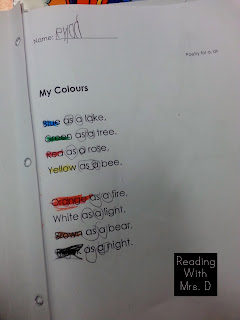 Name:
Poetry for a
My Colours
Blue as a lake,
Green as a tree,
Red as a rose,
Yellow as a bee.
Orange as a fire,
White as a light,
Brown as a bear,
as a night.
Reading
With
Mrs. D